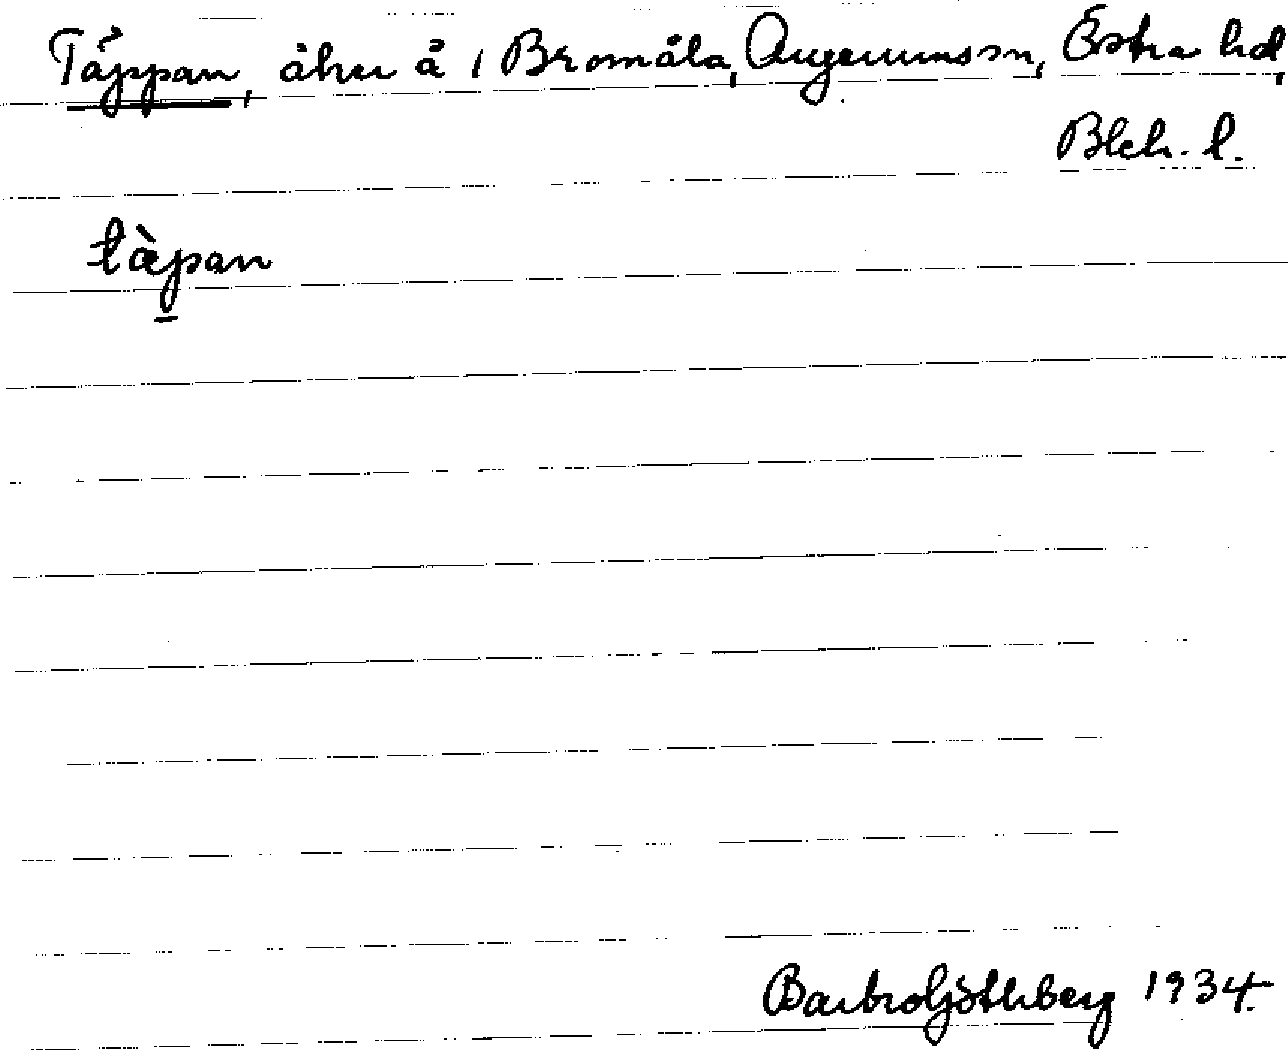 Täppan, åker å 1 Bromåla, Augerumssn, Östra hd,
Blek. l.
tæ̀pan
Barbro Göthberg 1934.